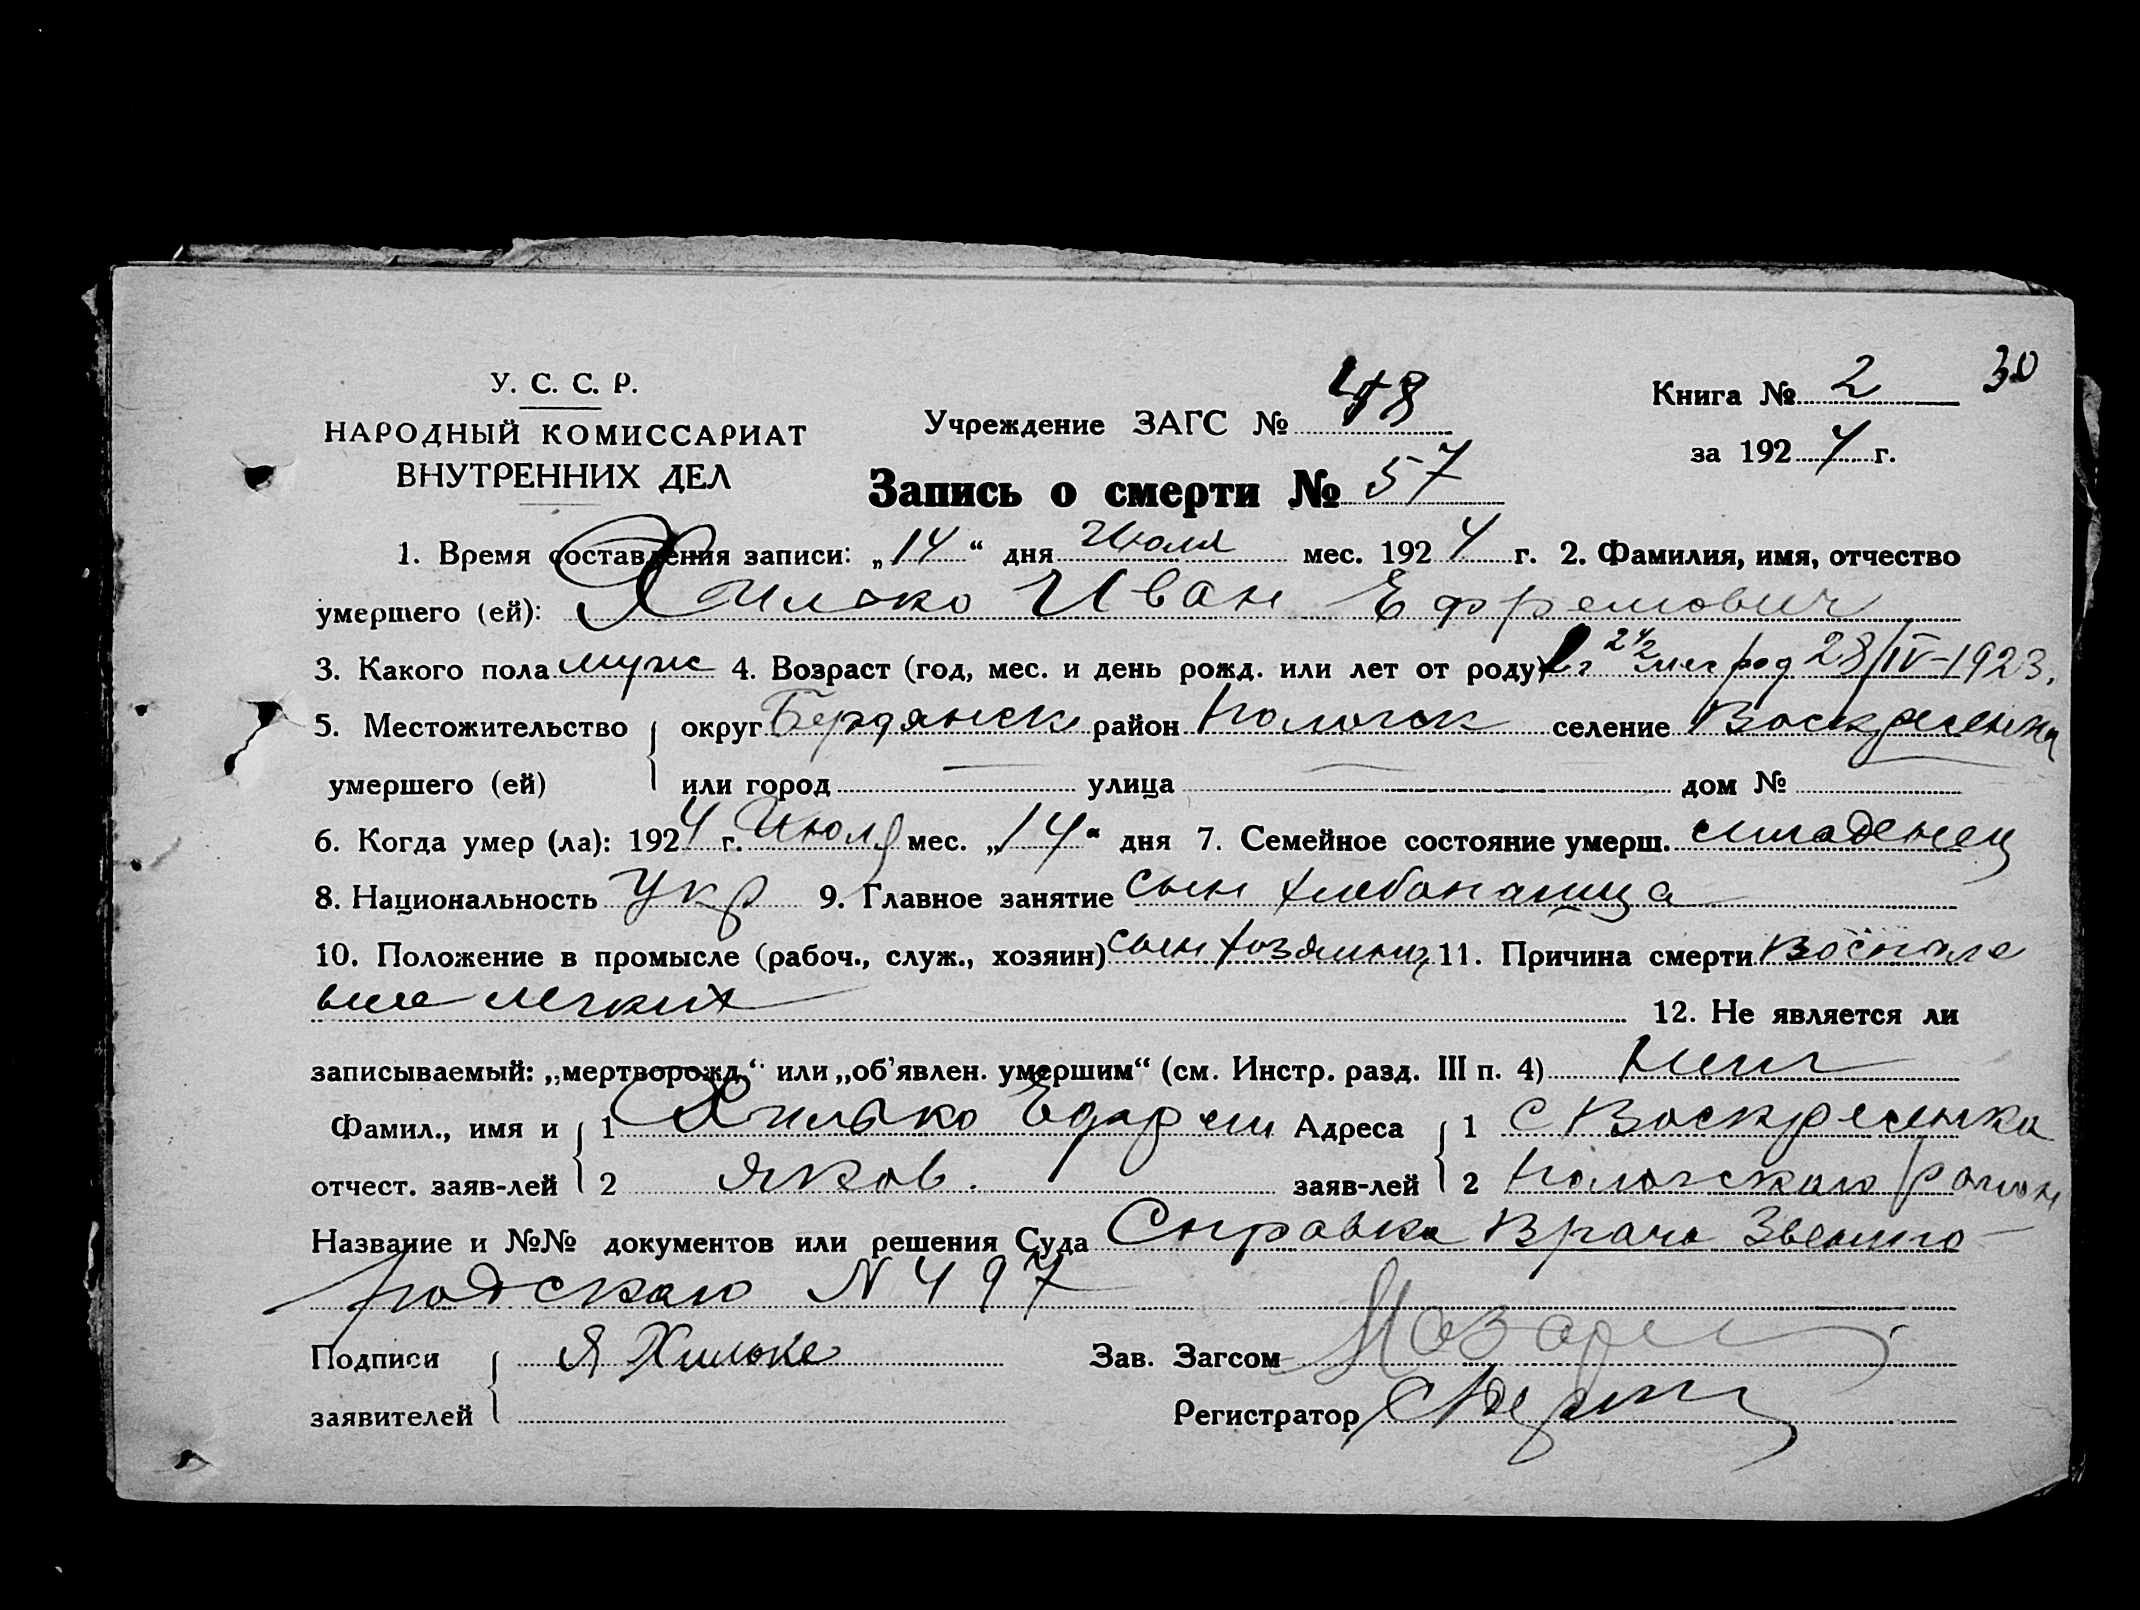 30
У. С. С. Р.
НАРОДНЫЙ КОМИССАРИАТ
ВНУТРЕННИХ ДЕЛ
Учреждение ЗАГС №
Книга № 2
за 1924 г.
Запись о смерти № 57
1. Время составления записи: „14“ дня Июля мес. 1924 г. 2. Фамилия, имя, отчество
умершего (ей): Хилько Иван Ефремович
3. Какого пола муж 4. Возраст (год, мес. и день рожд. или лет от роду) 1 г 2 1/2 мес род 28/IV-1923.
5. Местожительство умершего (ей) округ Бердянск район Пологск селение Воскресенка
или город — улица — дом №
6. Когда умер (ла): 1924 г. Июля мес. „14“ дня 7. Семейное состояние умерш. младенец
8. Национальность Укр 9. Главное занятие сын хлебопашца
10. Положение в промысле (рабоч., служ., хозяин) сын хозяина 11. Причина смерти воспале
ние легких 12. Не является ли
записываемый: „мертворожд.“ или „об'явлен. умершим“ (см. Инстр. разд. III п. 4) нет
Фамил., имя и отчест. заяв-лей 1 Хилько Ефрем Адреса заяв-лей 1 с Воскресенка
2 Яков. 2 Пологского район
Название и №№ документов или решения Суда Справка Врача Звениго-
родского N 497
Подписи заявителей Я Хилько Зав. Загсом
Регистратор